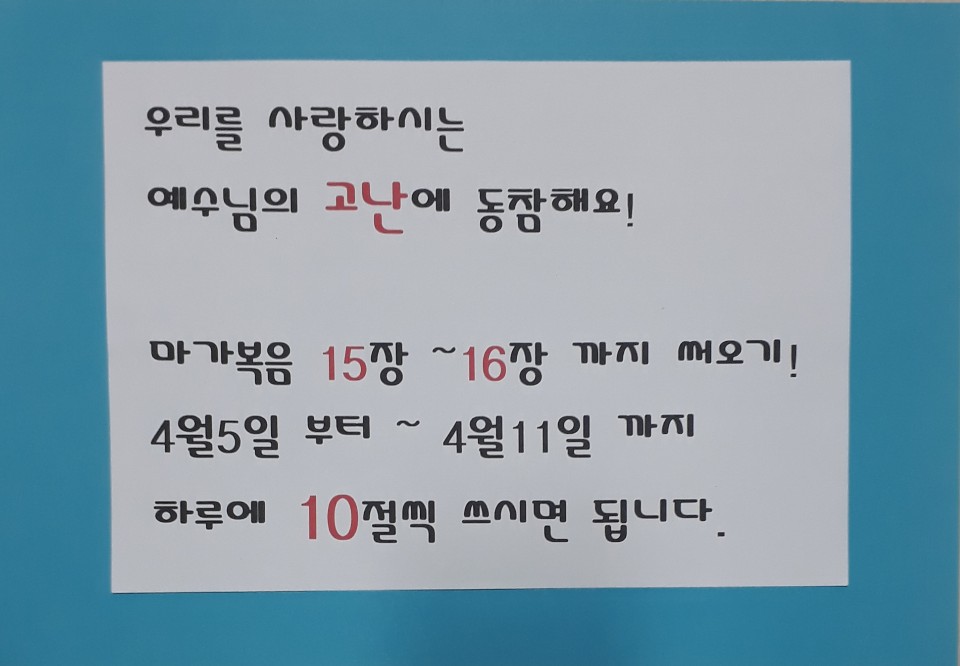 우리를 사랑하시는
예수님의 고난에 동참해요!
마가복음 15장 ~16장 까지 써오기!
4월5일 부터 ~ 4월11일 까지
하루에 10절씩 쓰시면 됩니다.